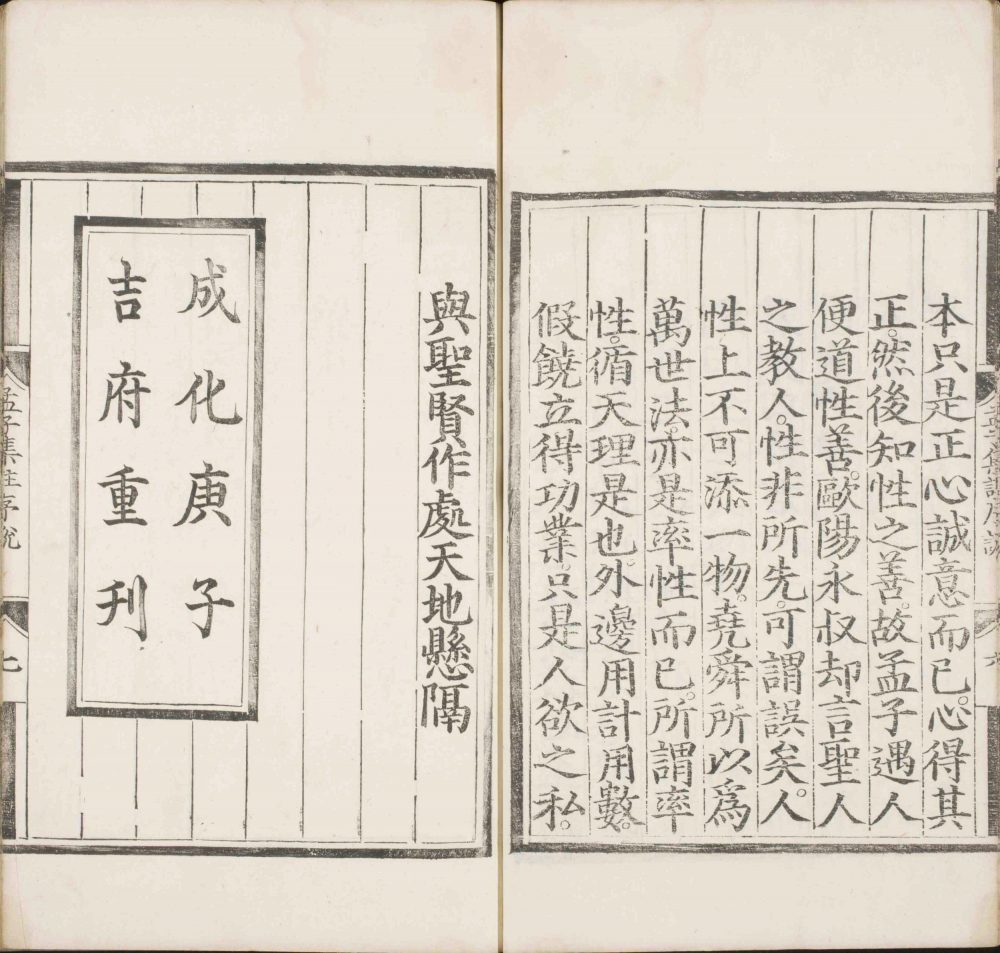 本只是正心誠意而已。心得其
正。然後知性之善。故孟子遇人
便道性善。歐陽永叔却言聖人
之教人。性非所先。可謂誤矣。人
性上不可添一物。堯舜所以爲
萬世法。亦是率性而已。所謂率
性。循天理是也。外邊用計用數。
假饒立得功業。只是人欲之私。
與聖賢作處天地懸隔
成化庚子
吉府重刊
孟子集註序說
七